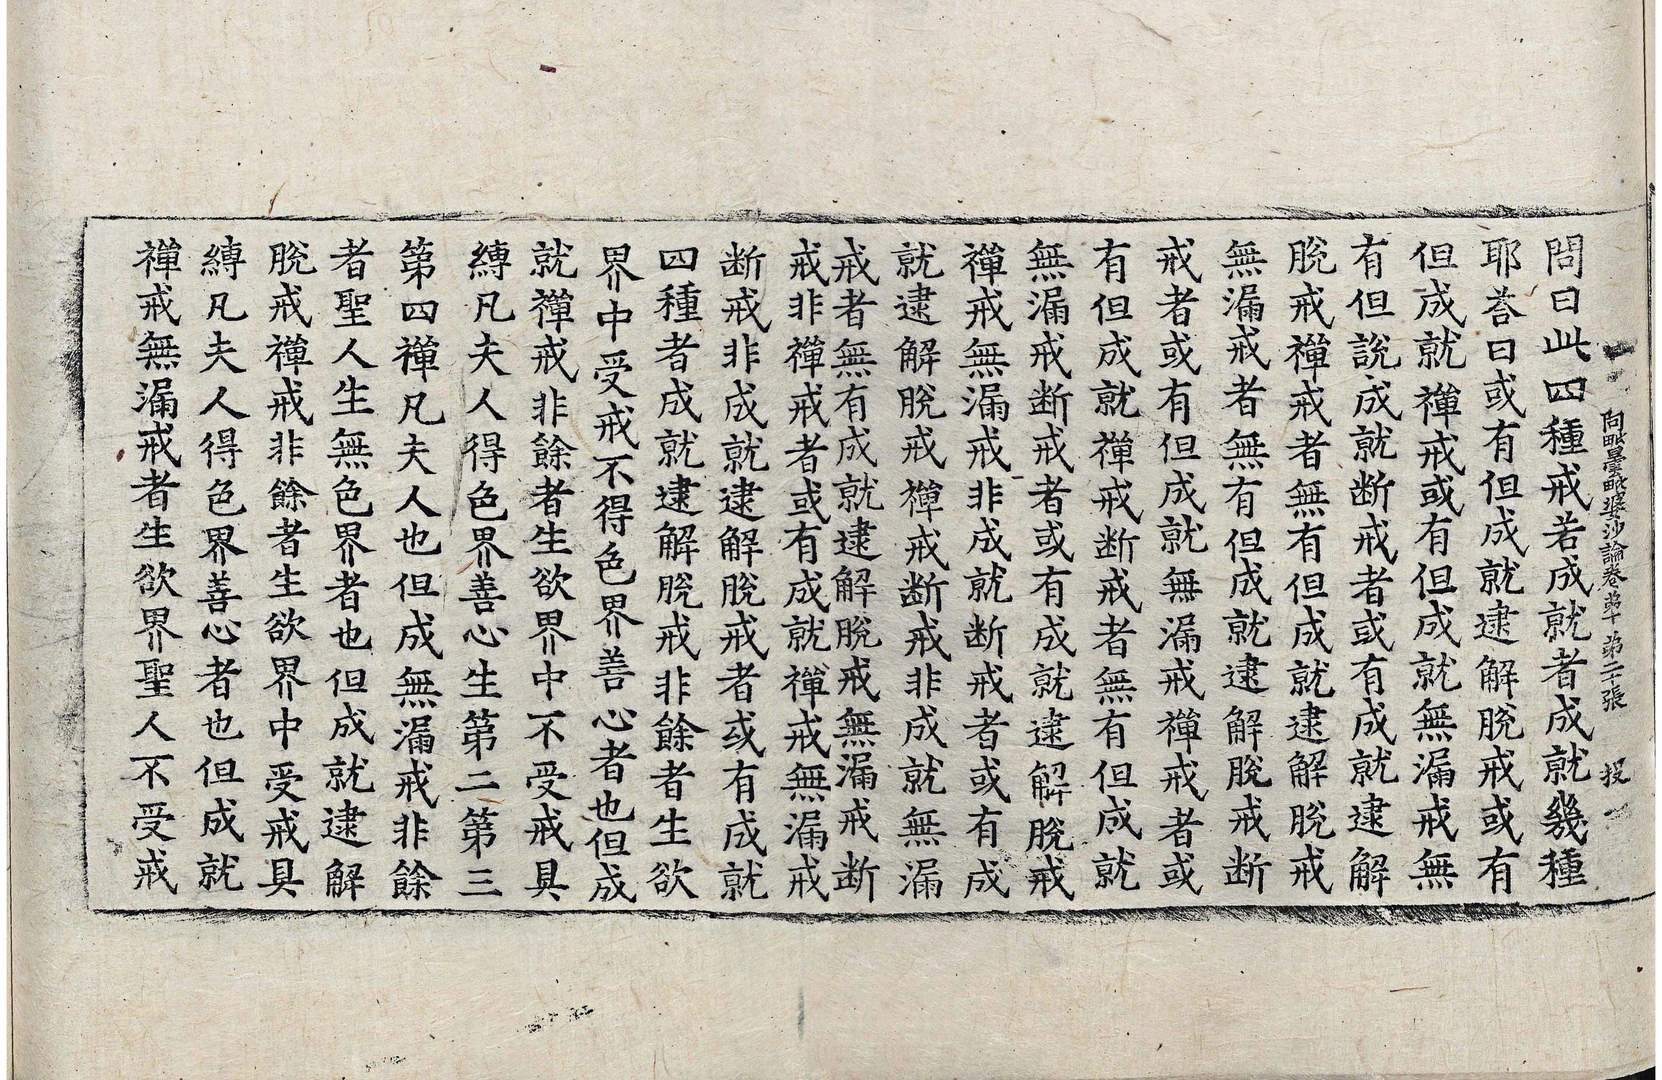 問曰此四種戒若成就者成就幾種
耶荅曰或有但成就逮解脫戒或有
但成就禪戒或有但成就無漏戒無
有但說成就断戒者或有成就逮解
脫戒禪戒者無有但成就逮解脫戒
無漏戒者無有但成就逮解脫戒断
戒者或有但成就無漏戒禪戒者或
有但成就禪戒断戒者無有但成就
無漏戒断戒者或有成就逮解脫戒
禪戒無漏戒非成就断戒者或有成
就逮解脫戒禪戒断戒非成就無漏
戒者無有成就逮解脫戒無漏戒断
戒非禪戒者或有成就禪戒無漏戒
断戒非成就逮解脫戒者或有成就
四種者成就逮解脫戒非餘者生欲
界中受戒不得色界善心者也但成
就禪戒非餘者生欲界中不受戒具
縛凡夫人得色界善心生第二第三
第四禪凡夫人也但成無漏戒非餘
者聖人生無色界者也但成就逮解
脫戒禪戒非餘者生欲界中受戒具
縛凡夫人得色界善心者也但成就
禪戒無漏戒者生欲界聖人不受戒
阿毗曇毗婆沙論卷第十 第二十張 投